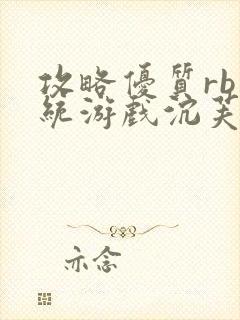 攻略優質rb
統游戲沉芙
亦念